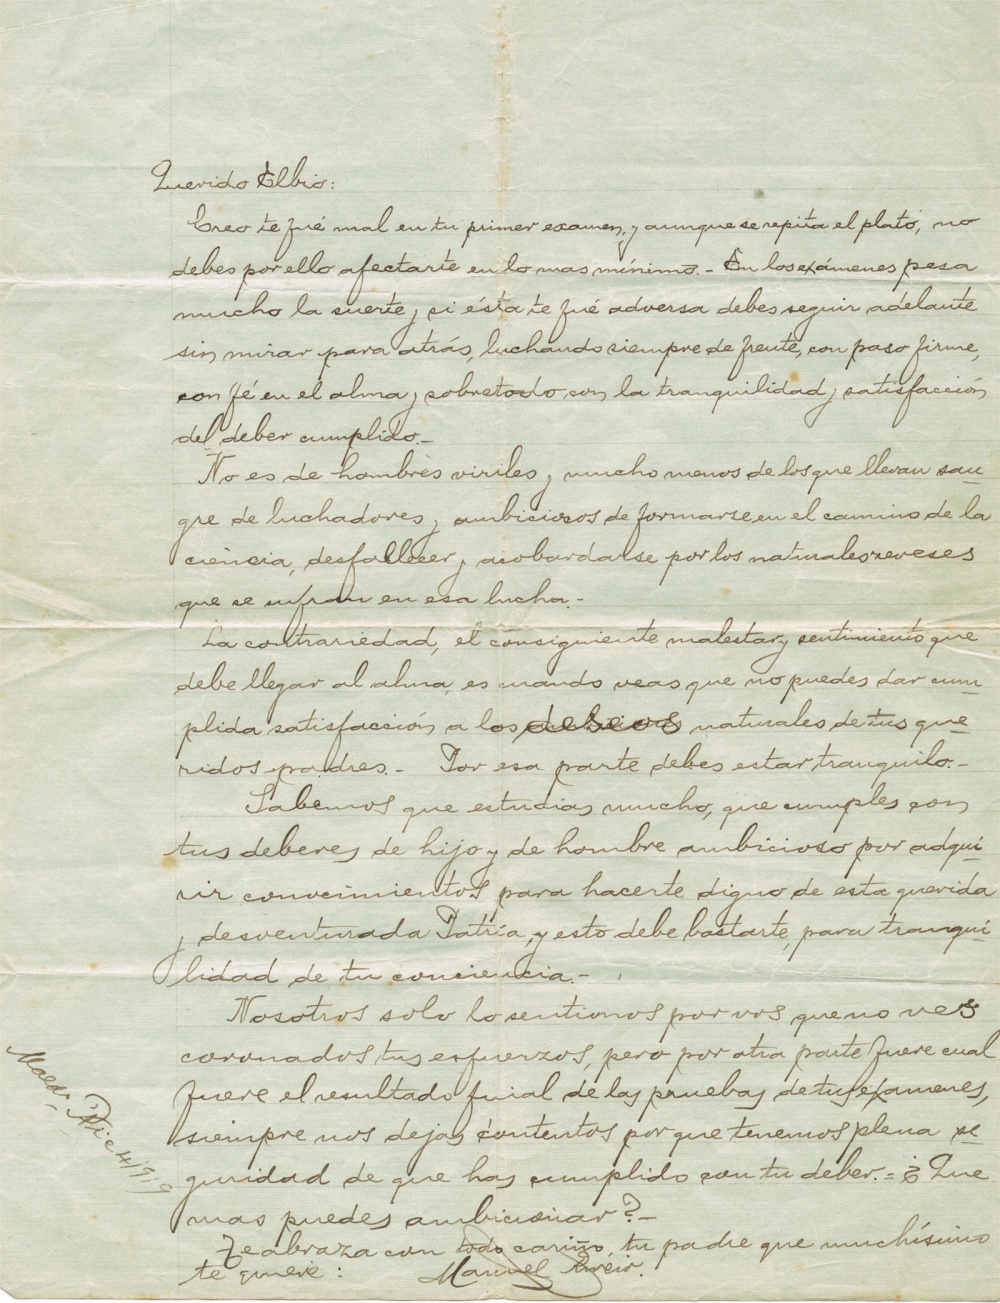 Querido Elbio:
Creo te fué mal en tu primer examen, y aunque se repita el plato, no
debes por ello afectarte en lo mas mínimo.- En los exámenes pesa
mucho la suerte y si ésta te fué adversa debes seguir adelante
sin mirar para atrás, luchando siempre de frente, con paso firme,
con fé en el alma y sobretodo con la tranquilidad y satisfacción
del deber cumplido.-
No es de hombres viriles y mucho menos de los que llevan san-
gre de luchadores y ambiciosos de formarse en el camino de la
ciéncia, desfallecer y acobardarse por los naturales reveses
que se sufran en esa lucha.-
La contrariedad, el consiguiente malestar y sentimiento que
debe llegar al alma, es cuando veas que no puedes dar cum-
plida satisfacción a los deseos naturales de tus que-
ridos padres.- Por esa parte debes estar tranquilo.-
Sabemos que estudias mucho, que cumples con
tus deberes de hijo y de hombre ambicioso por adqui-
rir conocimientos para hacerte digno de esta querida
y desventurada Patria, y esto debe bastarte, para tranqui-
lidad de tu conciencia.-
Nosotros solo lo sentimos por vos que no ves
coronados tus esfuerzos, pero por otra parte fuere cual
fuere el resultado final de las pruebas de tus exámenes,
siempre nos dejas contentos por que tenemos plena se-
guridad de que has cumplido con tu deber.= ¿Que
mas puedes ambicionar?-
Te abraza con todo cariño, tu padre que muchísimo
te quiere:
Manuel
Dic 4/919